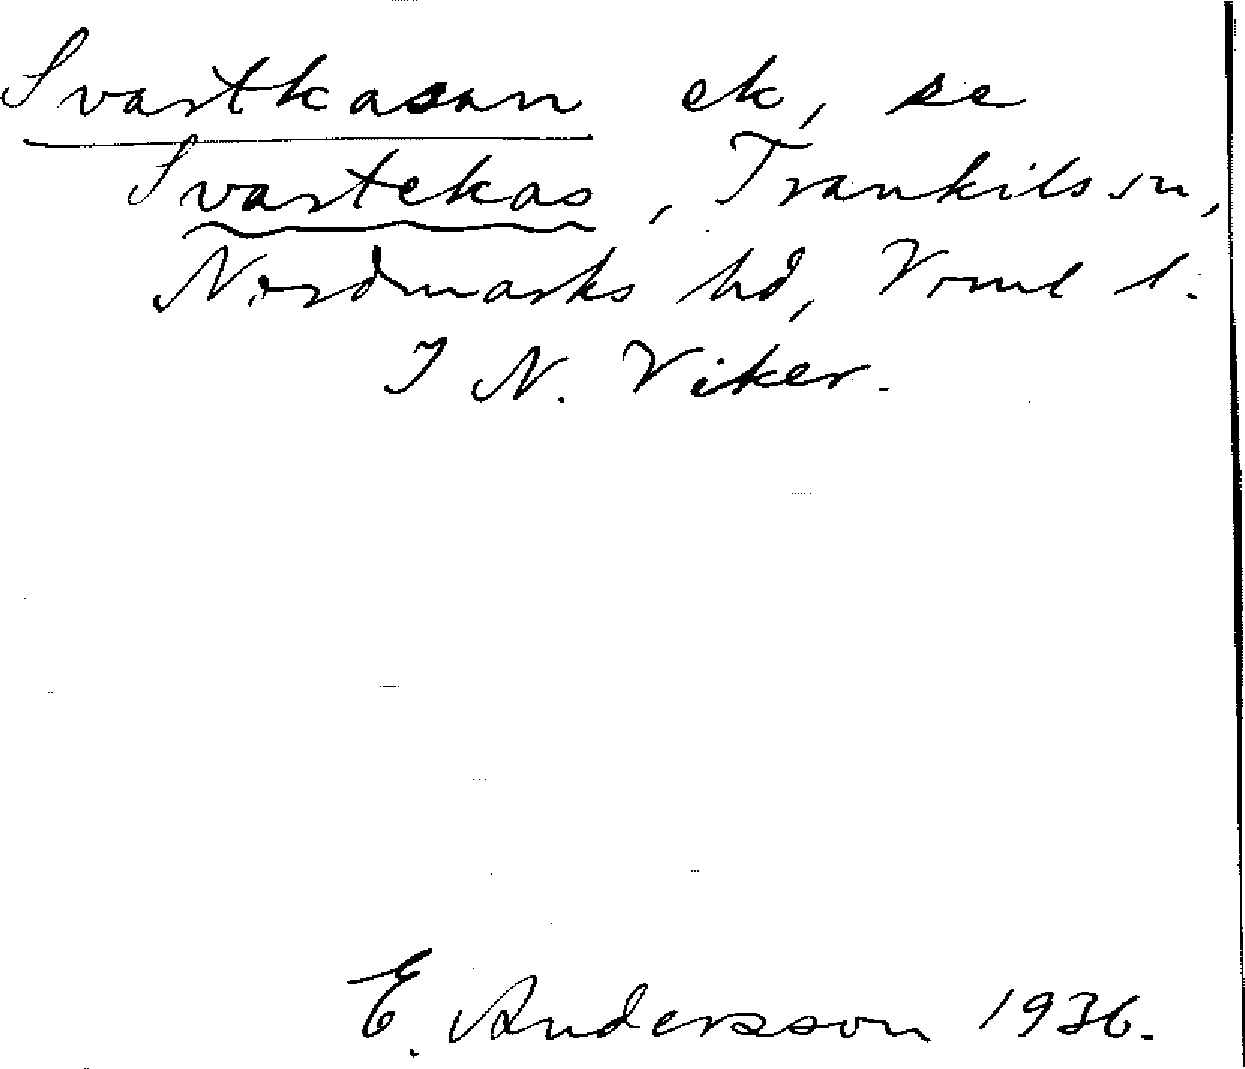 Svartkasan ek, se
Svartekas, Trankilsson,
Nordmarks hd, Vrml l.
I N. Viker.
E. Andersson 1936.